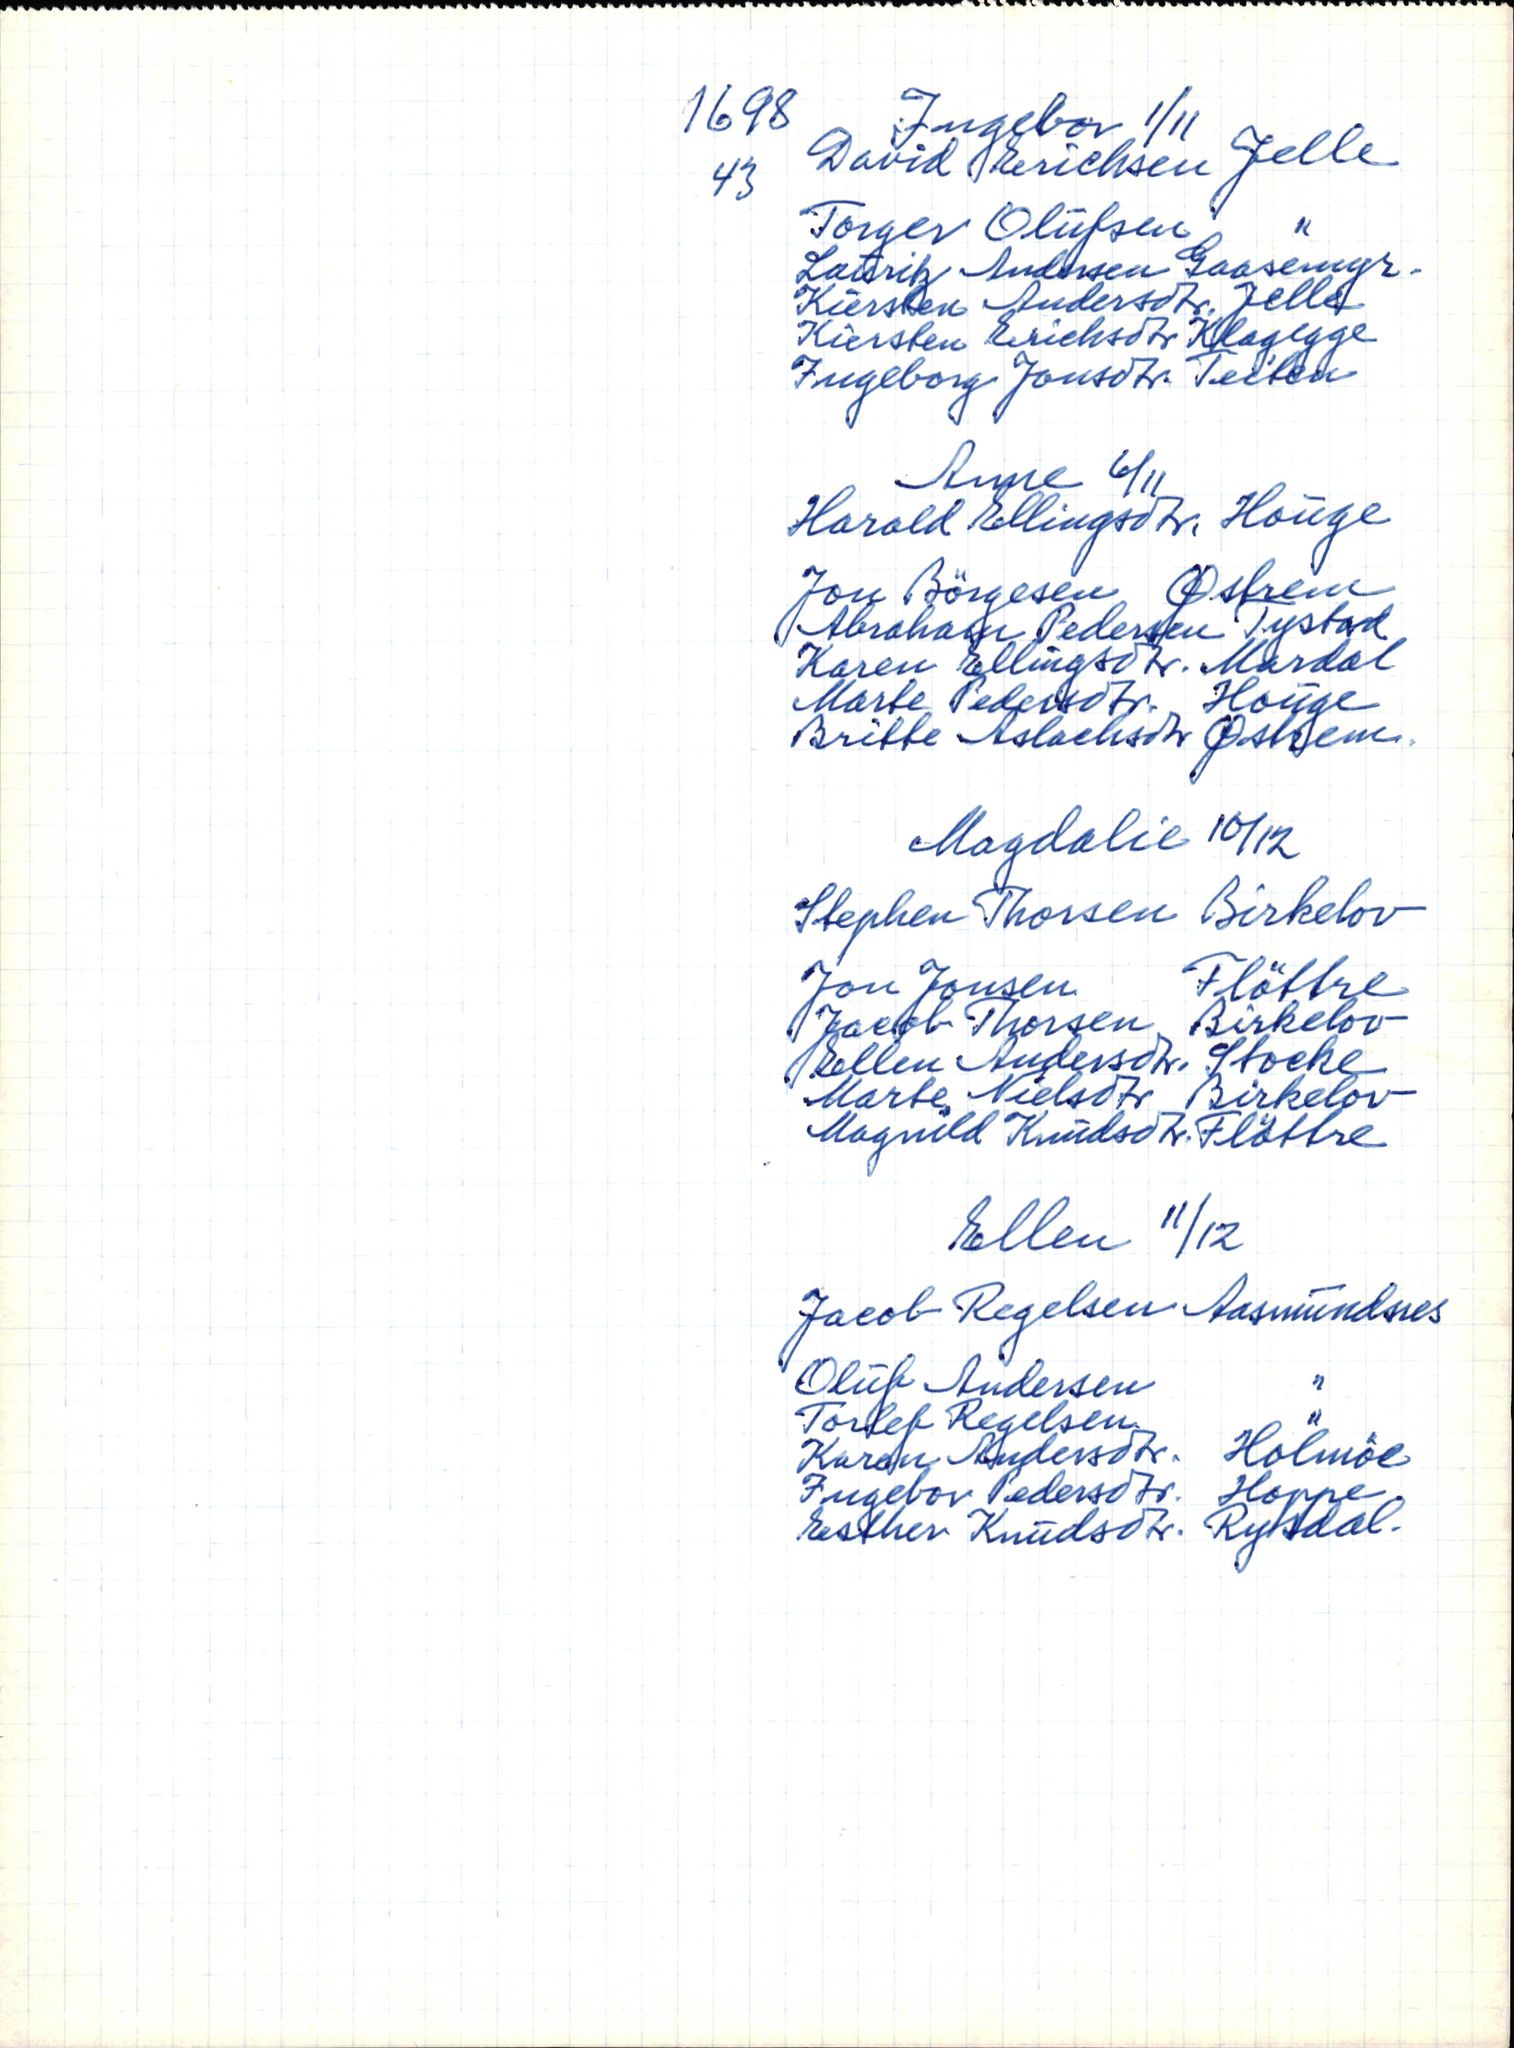 1698 Ingebor 1/11
43 David Erichsen Jelle
Torger Olŭfsen "
Laŭritz Andersen Gaasemyr.
Kiersten Andersdtr. Jelle
Kiersten Erichsdtr Klagegge
Ingeborg Jonsdtr. Teiten
Anne 6/11
Harald Ellingsdtr. Hoŭge
Jon Börgesen Østrem
Abraham Pedersen Tystad
Karen Ellingsdtr. Mardal
Marte Pedersdtr. Hoŭge
Britte Aslachsdtr Østrem.
Magdalie 10/12
Stephen Thorsen Birkelov
Jon Jonsen Flöttre
Jacob Thorsen Birkelov
Ellen Andersdtr. Stocke
Marte Nielsdtr Birkelov
Magnild Knŭdsdtr. Flöttre
Ellen 11/12
Jacob Regelsen Aasmŭndsnes
Olŭf Andersen "
Torlef Regelsen "
Karen Andersdtr. Holmöe
Ingebor Pedersdtr. Hoppe.
Esther Knŭdsdtr. Rysdal.